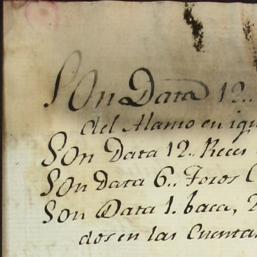 SOn Data 12..
del Alamo en igu
SOn Data 12.. Reces
SOn data 6.. Toros
SOn Data 1. baca,
dos en las Cuenta